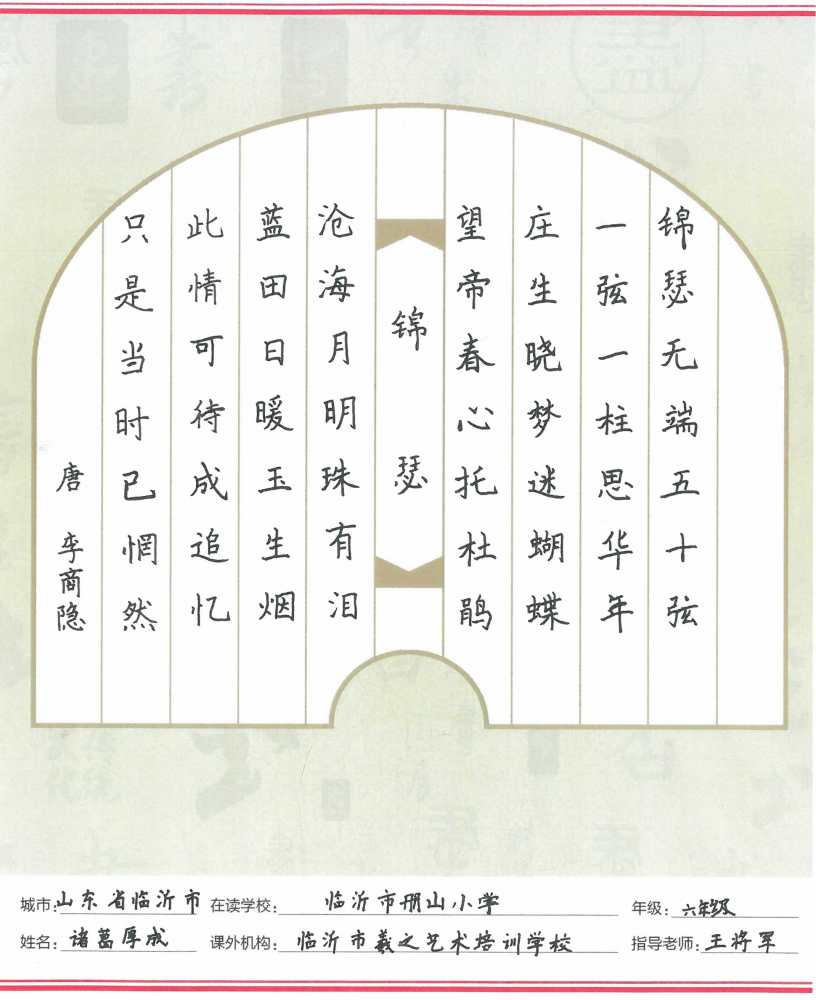 锦瑟无端五十弦
一弦一柱思华年
庄生晓梦迷蝴蝶
望帝春心托杜鹃
锦瑟
沧海月明珠有泪
蓝田日暖玉生烟
此情可待成追忆
只是当时已惘然
唐 李商隐
城市:山东省临沂市 在读学校: 临沂市册山小学 年级: 六年级
姓名: 诸葛厚成 课外机构: 临沂市羲之艺术培训学校 指导老师: 王将军